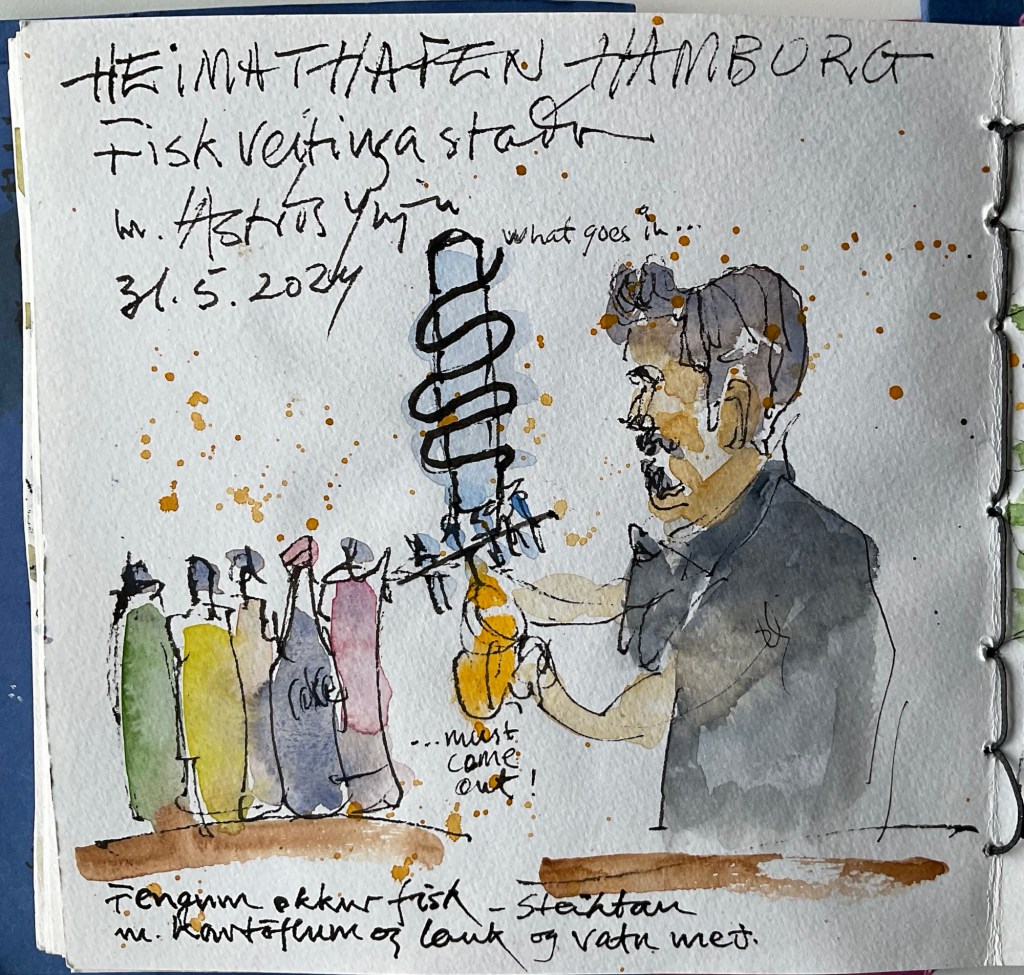 HEIMATHAFEN HAMBORG
Fisk veitingastaður
m.
31.5.2024
what goes in...
Coke
...must
come
out!
Fengum okkur fisk - steiktan
m. kartöflum og lauk og vatn með.